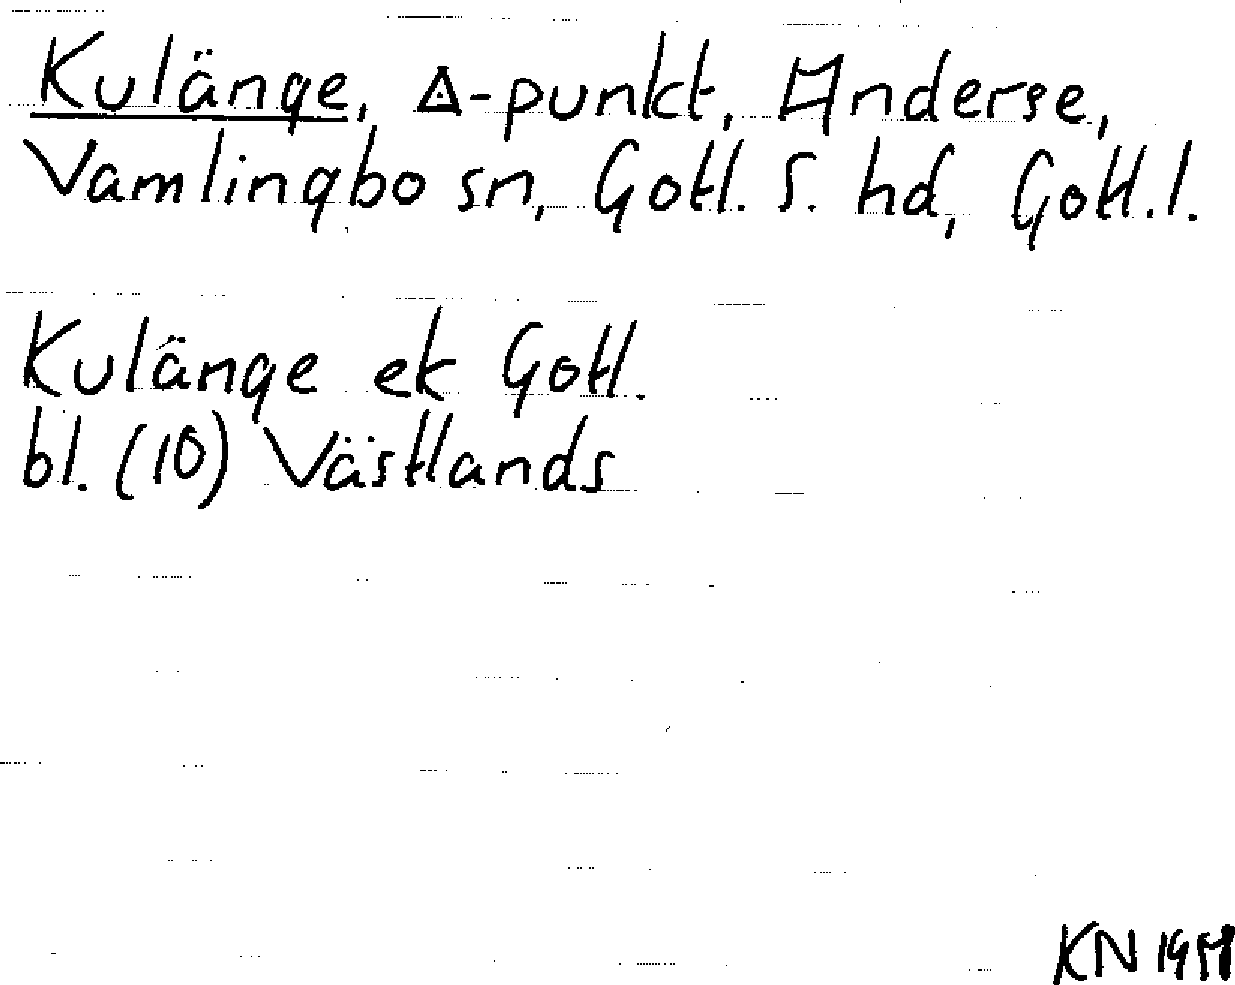 Kulänge, Δ-punkt, Anderse,
Vamlingbo sn, Gotl. S. hd, Gotl.l.
Kulänge ek Gotl.
bl. (10) Västlands
KN